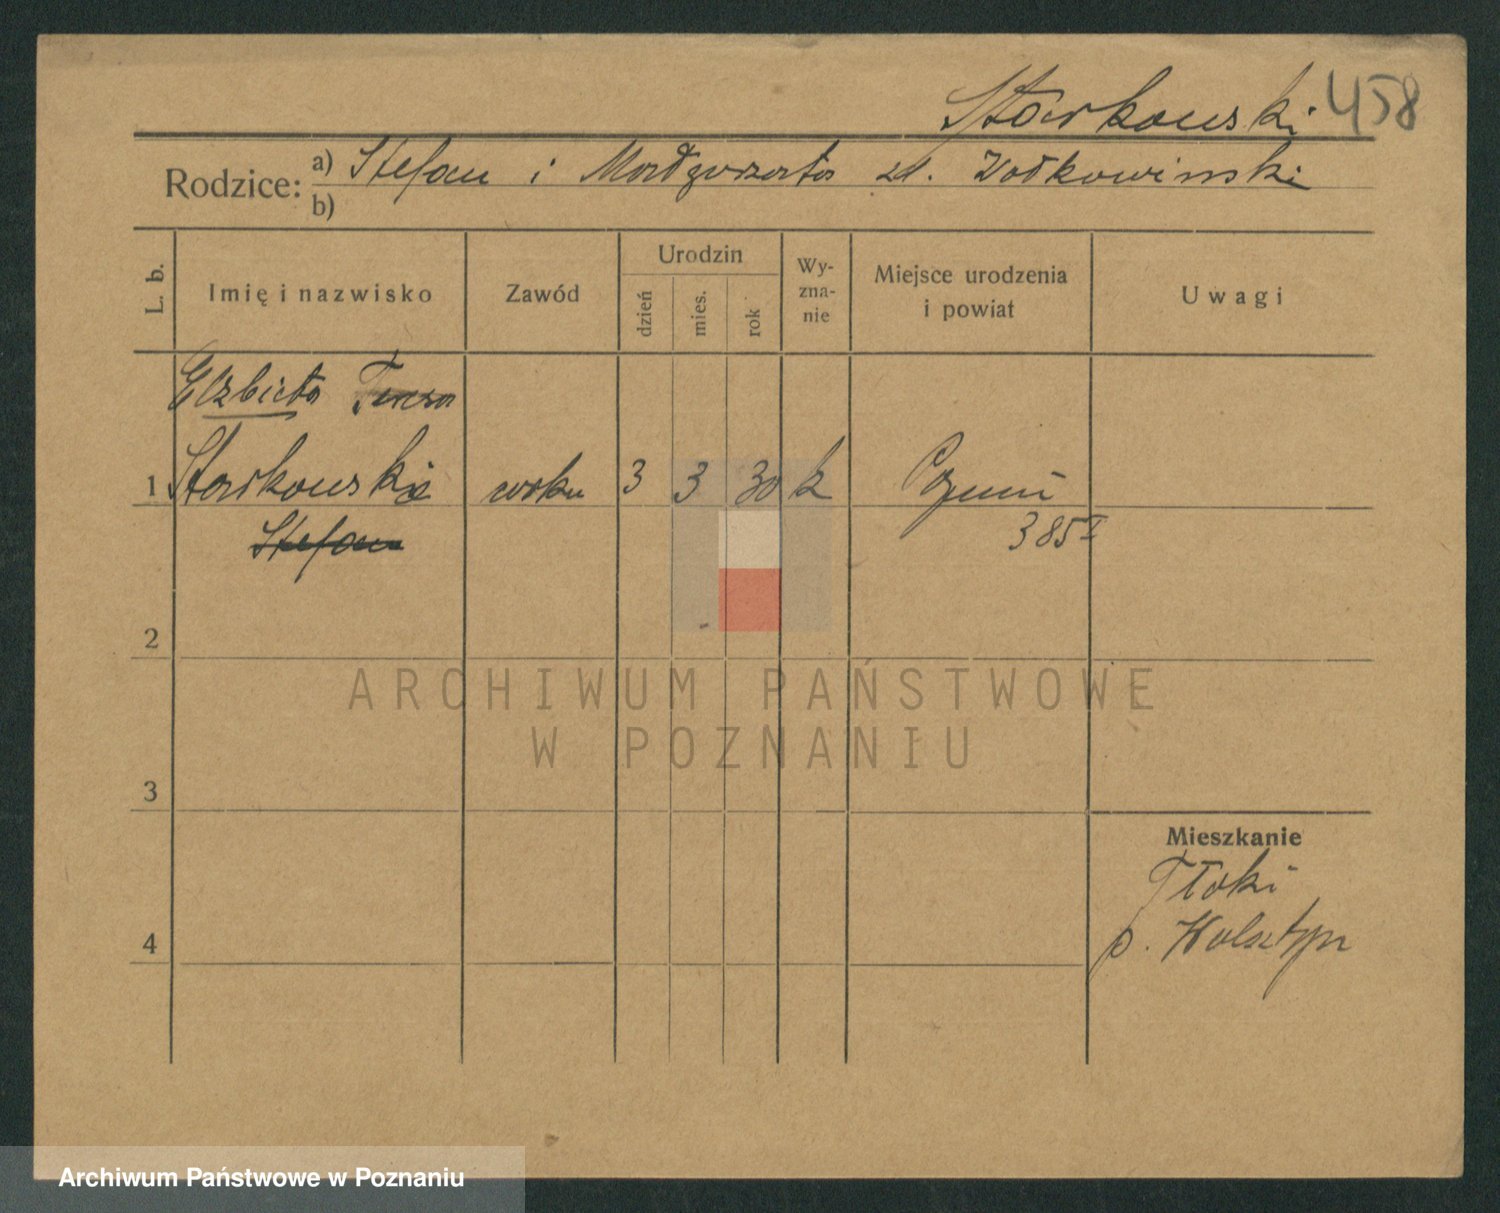 Starkowski 458
Rodzice: a) Stefan i Małgorzata zd. Wołkowiński
b)
L. b. Imię i nazwisko Zawód Urodzin dzień mies. rok Wy-zna-nie Miejsce urodzenia i powiat Uwagi
Elżbieta Teresa
1 Starkowski córka 3 3 30 k Poznań
Stefan 385 I
2
ARCHIWUM PAŃSTWOWE
W POZNANIU
3
Mieszkanie
Tłoki
4 p. Wolsztyn
Archiwum Państwowe w Poznaniu